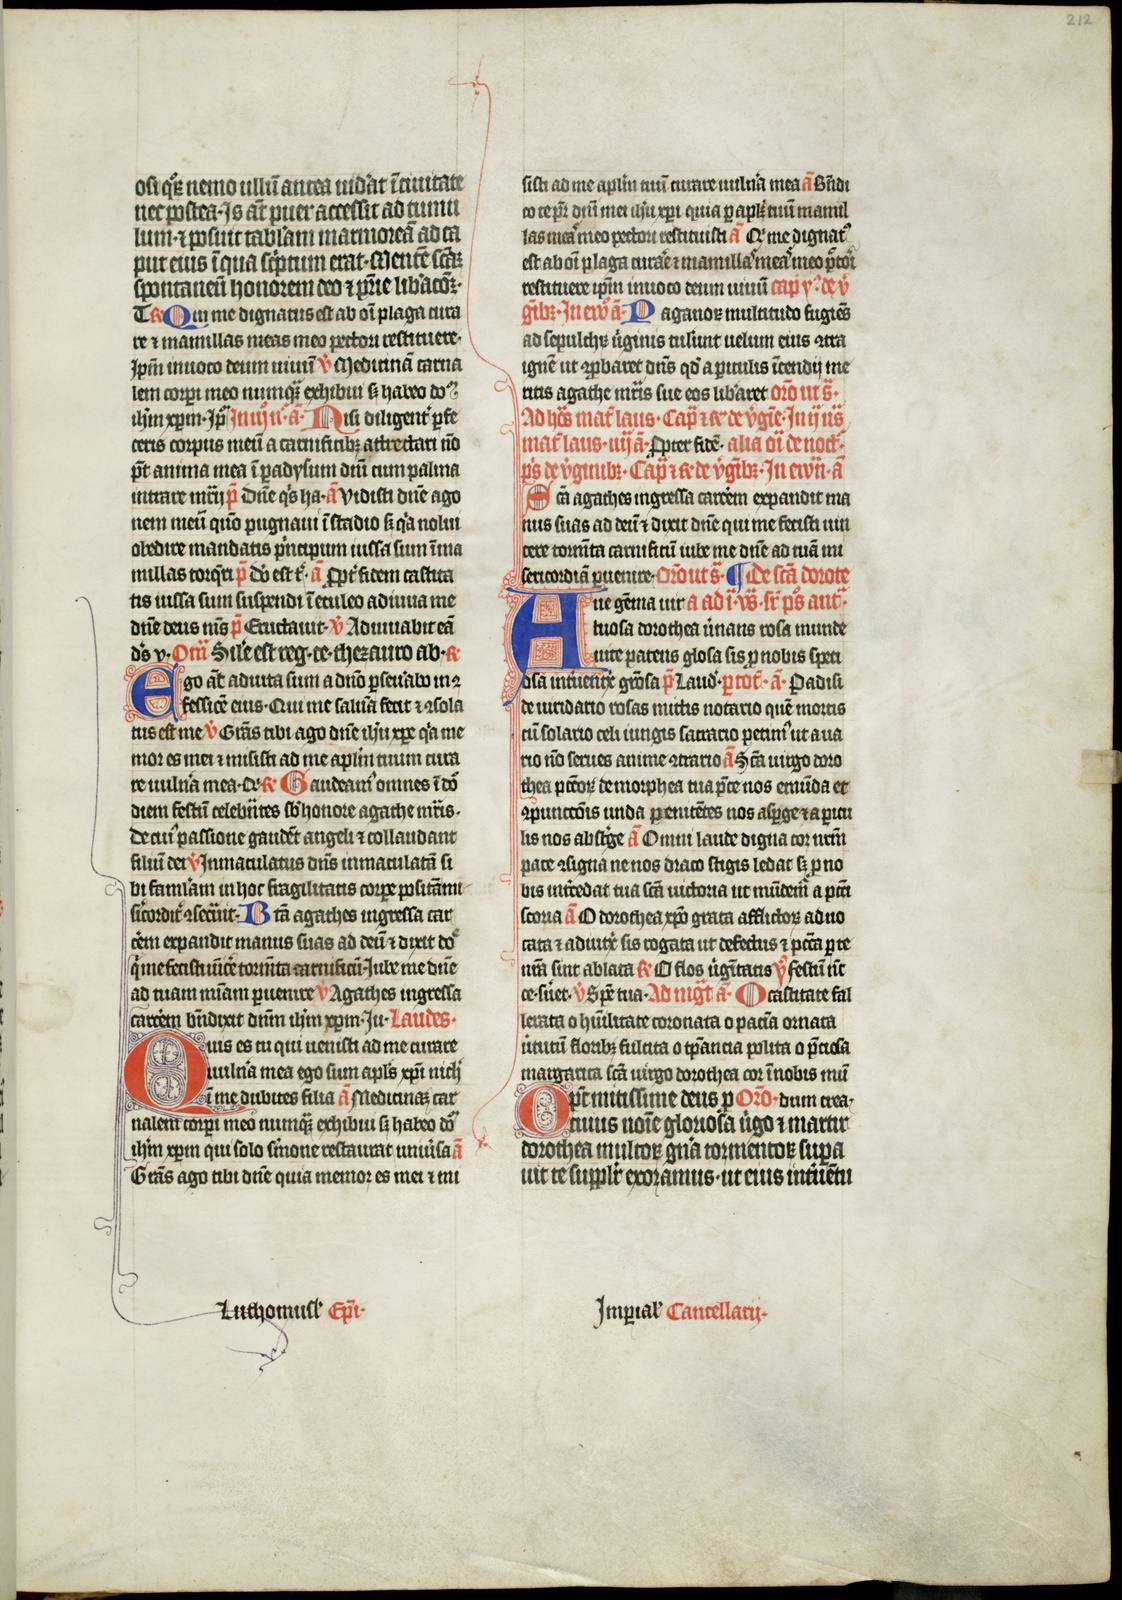 212
osi qͦꝫ nemo ullū antea uid'at ī ciuitate
nec postea· Is aūt puer accessit ad tumu
lum· ⁊ posuit tabl'am marmoreā ad ca
put eius ī qua sc̄ptum erat· Mentē scāꝫ
spontaneū honorem deo ⁊ pr̄ie lib'acōꝫ·
T ℟ Qui me dignatus est ab oī plaga cura
re ⁊ mamillas meas meo pectori restituere·
Ip̄m inuoco deum uiuū ℣ Medicinā carna
lem corpi meo numqᷓ exhibui sꝫ habeo dō
ih̄m xp̄m· Ip̄ In iijͦ n̄· a· Nisi diligent' ꝑfe
ceris corpus meū a carnificibꝫ attrectari nō
pōt anima mea ī padysum dn̄i cum palma
intrare mr̄ij p̄ Dn̄e qͥs ha· a Vidisti dn̄e ago
nem meū quō pugnaui ī stadio sꝫ qͥa nolui
obedire mandatis pͥncipum iussa sum ī ma
millas torq̄ri p̄ Dn̄i est t'· a Ppt' fidem castita
tis iussa sum suspendi ī eculeo adiuua me
dn̄e deus m̄s p̄ Eructauit· ℣ Adiuuabit eā
d̄s v· Om̄ Sil'e est reg· ce· thezauro ab· ℟
Ego aūt adiuta sum a dn̄o ꝑseu'abo in ↄ
fessiōē eius· Qui me saluā fecit ⁊ ↄsola
tus est me ℣ Gr̄as tibi ago dn̄e ih̄u xp̄e qͥa me
mor es mei ⁊ misisti ad me apl̄m tuum cura
re uuln'a mea· Q̄· ℟ Gaudeamꝰ omnes ī dō
diem festū celebrātes sb̄ honore agathe mr̄is·
De cuiꝰ passione gaudēt angeli ⁊ collaudant
filium dei ℣ Inmaculatus dn̄s inmaculatā si
bi famlam in hoc fragilitatis corpe positam mi
sic̄orditͬ ↄsecuit· Btā agathes ingressa car
cēm expandit manus suas ad deū ⁊ dixit dō
qͥ me fecisti uīcē torm̄ta carnificū· Iube me dn̄e
ad tuam mīam ꝑuenire ℣ Agathes ingressa
carcēm bn̄dixit dnm ih̄m xp̄m· Iu· Laudes·
Quis es tu qui uenisti ad me curare
uuln'a mea ego sum apl̄s xp̄i nich'
ī me dubites filia a Medicinaꝫ car
nalem corpi meo numqᷓ exhibui sꝫ habeo dō
ih̄m xp̄m qui solo s'mone restaurat uniu'sa a
Gr̄as ago tibi dn̄e quia memor es mei ⁊ mi
sisti ad me apl̄m tuū curare uuln'a mea a Bn̄di
co te pr̄ dn̄i mei ih̄u xp̄i quia ꝑ apl̄m tuū mamil
las meas meo pectori restituisti a Qͥ me dignatꝰ
est ab oī plaga curare ⁊ mamillas meas meo pctōi
restituere ip̄m inuoco deum uiuū cap̄ ⁊ vs̄ de v'
gībꝫ· In ew̄ a· Paganoꝝ multitudo fugiēs
ad sepulchꝝ v'ginis tulerunt uelum eius ↄtra
ignē ut ↄprobaret dn̄s qd' a ꝑiculis īcendij me
ritis agathe mr̄is sue eos lib'aret oro ut s·
Ad ho᷒s mat̄ laus· Cap̄ ⁊ ℟ de v'gīe· In ij n̄s
mat̄ laus· iiij a· Propter fidē· alia oī de noct·
p̄s de v'ginibꝫ· Cap̄ ⁊ ℟ de v'gībꝫ· In ewn̄· a
Scā agathes ingressa carcēm expandit ma
nus suas ad deū ⁊ dixit dn̄e qui me fecisti uin
cere torm̄ta carnificū iube me dn̄e ad tuā mi
sericordiā ꝑuenire· Oro ut s· ¶ De scā dorote
Aue gēma uir a ad i· vs· sr̄ p̄s ant·
tuosa dorothea v'nans rosa munde
iute patens glosa sis ꝑ nobis speci
osā int'uentix grosa p̄ Laud· p̄ tot· a· Padisi
de uiridario rosas mittis notario quē mortis
cū solario celi iungis sacrario petimꝰ ut a ua
rio nō serues anime ↄtrario a Scā uirgo doro
thea pctōꝝ de morphea tua p̄ce nos emūda et
ↄpunctōis unda penitētes nos aspge ⁊ a pitu
lis nos abst'ge a Omni laude digna cor nrm̄
pace ↄsigna ne nos draco stigis ledat sꝫ ꝑ no
bis int'cedat tua scā uictoria ut mūdem̄ a pcti
scoria a O dorothea xp̄o grata afflictoꝝ aduo
cata ⁊ adiutx̄ sis rogata ut defectus ⁊ pctā ꝑ te
nr̄a sint ablata ℟ O flos v'gītatis ℣ festū n̄c
ce· sūet· ℣ Spē tua· Ad mgt̄ a· O castitate fal
lerata o hūilitate coronata o paciā ornata
v'tutū floribꝫ fulcita o tꝑancia polita o p̄ciosa
margarita scā uirgo dorothea cor īnobis mū
Op̄t mitissime deus ꝑ Orō· dum crea·
cuius noīe gloriosa v'go ⁊ martir
dorothea multoꝝ gn̄a tormentoꝝ supa
uit te supplr̄ exoramus· ut eius int'uētu
Luthomusl' Ep̄i·
Imꝑial' Cancellarij·